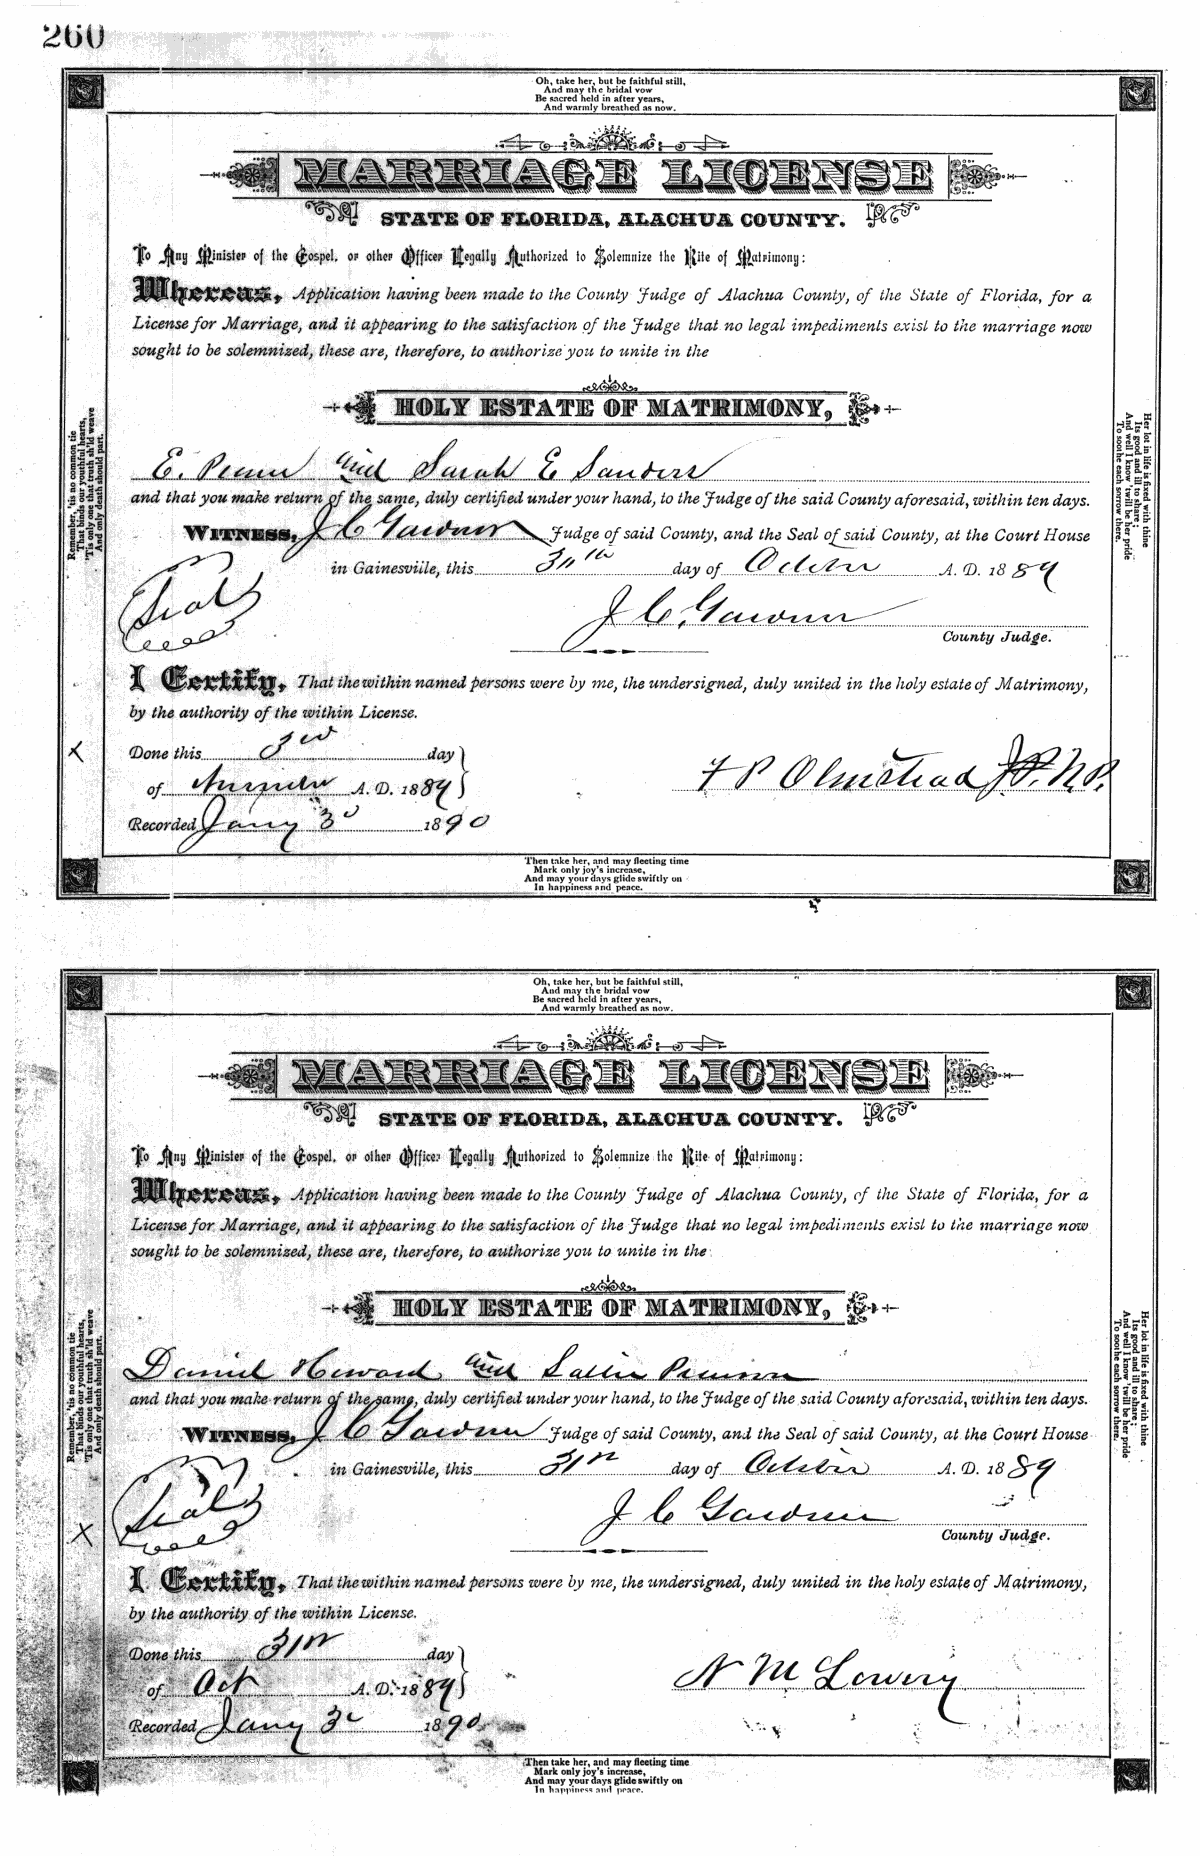 260
Oh, take her, but be faithful still,
And may the bridal vow
Be sacred held in after years,
And warmly breathed as now.
MARRIAGE LICENSE
STATE OF FLORIDA, ALACHUA COUNTY.
To Any Minister of the Gospel, or other Officer Legally Authorized to Solemnize the Rite of Matrimony:
Whereas, Application having been made to the County Judge of Alachua County, of the State of Florida, for a
License for Marriage, and it appearing to the satisfaction of the Judge that no legal impediments exist to the marriage now
sought to be solemnized, these are, therefore, to authorize you to unite in the
HOLY ESTATE OF MATRIMONY,
E. and Sarah E Sanders
and that you make return of the same, duly certified under your hand, to the Judge of the said County aforesaid, within ten days.
WITNESS, J C Gardner Judge of said County, and the Seal of said County, at the Court House
in Gainesville, this 30th day of October A. D. 1889
Seal
J C. Gardner
County Judge.
I Certify, That the within named persons were by me, the undersigned, duly united in the holy estate of Matrimony,
by the authority of the within License.
Done this 3rd day
of November A. D. 1889
F P Olmstead J.P. N.P.
Recorded Jany 3d 1890
Remember, 'tis no common tie
That binds our youthful hearts,
'Tis only one that truth sh'ld weave
And only death should part.
Her lot in life is fixed with thine
Its good and ill to share;
And well I know 'twill be her pride
To soothe each sorrow there.
Then take her, and may fleeting time
Mark only joy's increase,
And may your days glide swiftly on
In happiness and peace.
Oh, take her, but be faithful still,
And may the bridal vow
Be sacred held in after years,
And warmly breathed as now.
MARRIAGE LICENSE
STATE OF FLORIDA, ALACHUA COUNTY.
To Any Minister of the Gospel, or other Officer Legally Authorized to Solemnize the Rite of Matrimony:
Whereas, Application having been made to the County Judge of Alachua County, of the State of Florida, for a
License for Marriage, and it appearing to the satisfaction of the Judge that no legal impediments exist to the marriage now
sought to be solemnized, these are, therefore, to authorize you to unite in the
HOLY ESTATE OF MATRIMONY,
Daniel Howard and Sallie Pearson
and that you make return of the same, duly certified under your hand, to the Judge of the said County aforesaid, within ten days.
WITNESS, J C Gardner Judge of said County, and the Seal of said County, at the Court House
in Gainesville, this 31st day of October A. D. 1889
Seal
J C Gardner
County Judge.
I Certify, That the within named persons were by me, the undersigned, duly united in the holy estate of Matrimony,
by the authority of the within License.
Done this 31st day
of Oct A. D. 1889
N M Lowery
Recorded Jany 3d 1890
Remember, 'tis no common tie
That binds our youthful hearts,
'Tis only one that truth sh'ld weave
And only death should part.
Her lot in life is fixed with thine
Its good and ill to share;
And well I know 'twill be her pride
To soothe each sorrow there.
Then take her, and may fleeting time
Mark only joy's increase,
And may your days glide swiftly on
In happiness and peace.